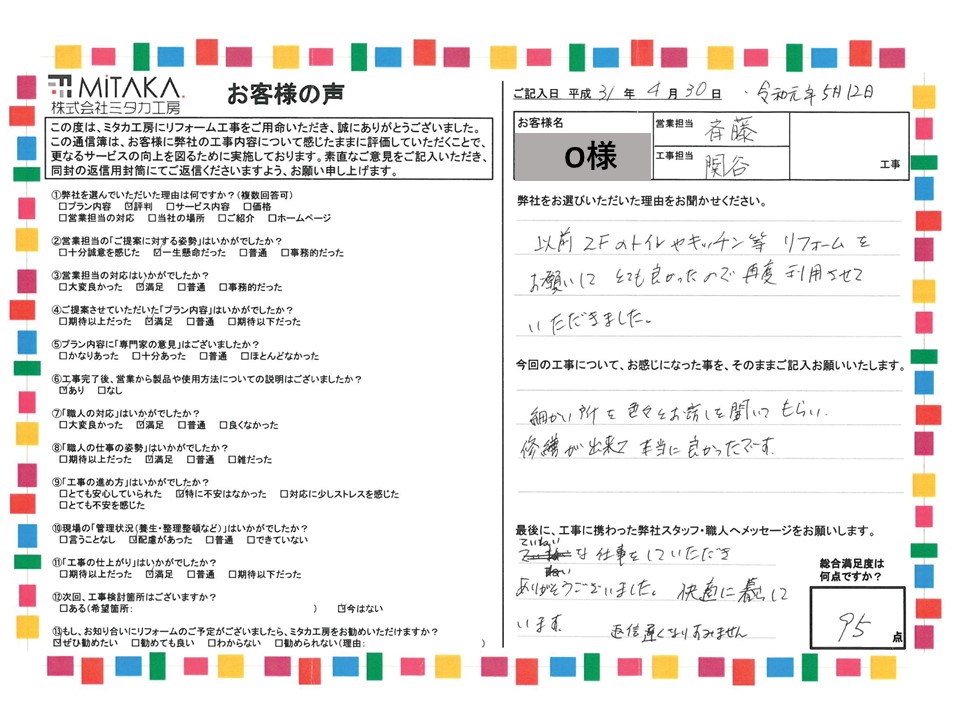 MiTAKA.
株式会社ミタカ工房
お客様の声
この度は、ミタカ工房にリフォーム工事をご用命いただき、誠にありがとうございました。
この通信簿は、お客様に弊社の工事内容について感じたままに評価していただくことで、
更なるサービスの向上を図るために実施しております。素直なご意見をご記入いただき、
同封の返信用封筒にてご返信くださいますよう、お願い申し上げます。
①弊社を選んでいただいた理由は何ですか?(複数回答可)
□プラン内容 ☑評判 □サービス内容 □価格
□営業担当の対応 □当社の場所 □ご紹介 □ホームページ
②営業担当の「ご提案に対する姿勢」はいかがでしたか?
□十分誠意を感じた ☑一生懸命だった □普通 □事務的だった
③営業担当の対応はいかがでしたか?
□大変良かった ☑満足 □普通 □事務的だった
④ご提案させていただいた「プラン内容」はいかがでしたか?
□期待以上だった ☑満足 □普通 □期待以下だった
⑤プラン内容に「専門家の意見」はございましたか?
□かなりあった □十分あった □普通 □ほとんどなかった
⑥工事完了後、営業から製品や使用方法についての説明はございましたか?
☑あり □なし
⑦「職人の対応」はいかがでしたか?
□大変良かった ☑満足 □普通 □良くなかった
⑧「職人の仕事の姿勢」はいかがでしたか?
□期待以上だった ☑満足 □普通 □雑だった
⑨「工事の進め方」はいかがでしたか?
□とても安心していられた ☑特に不安はなかった □対応に少しストレスを感じた
□とても不安を感じた
⑩現場の「管理状況(養生・整理整頓など)」はいかがでしたか?
□言うことなし ☑配慮があった □普通 □できていない
⑪「工事の仕上がり」はいかがでしたか?
□期待以上だった ☑満足 □普通 □期待以下だった
⑫次回、工事検討箇所はございますか?
□ある(希望箇所: ) ☑今はない
⑬もし、お知り合いにリフォームのご予定がございましたら、ミタカ工房をお勧めいただけますか?
☑ぜひ勧めたい □勧めても良い □わからない □勧められない(理由: )
ご記入日 平成 31 年 4 月 30 日 ・令和元年5月12日
お客様名
O様
営業担当 斉藤
工事担当 関谷
工事
弊社をお選びいただいた理由をお聞かせください。
以前 2Fのトイレやキッチン等 リフォームを
お願いして とても良かったので 再度 利用させて
いただきました。
今回の工事について、お感じになった事を、そのままご記入お願いいたします。
細かい所を色々とお話しを聞いてもらい.
修繕が出来て 本当に良かったです.
最後に、工事に携わった弊社スタッフ・職人へメッセージをお願いします。
ていねい
な仕事をしていただき
ありがとうございました。 快適に暮して
います. 返信遅くなりすみません
総合満足度は
何点ですか?
95 点